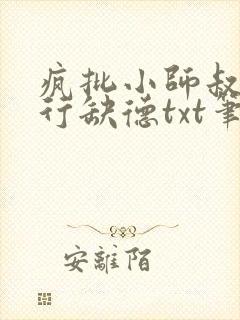 疯批小師叔
行缺德txt筆
安離陌